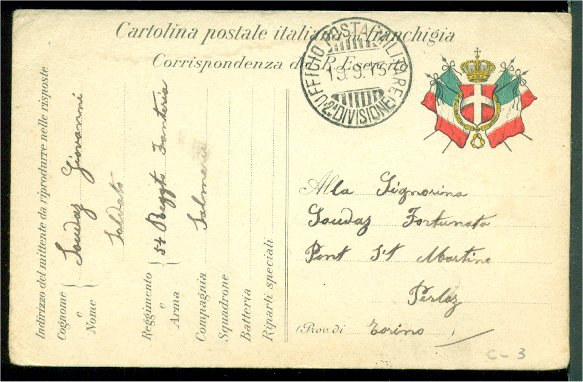 Cartolina postale italiana in franchigia
Corrispondenza del R. Esercito
UFFICIO POSTA MILITARE
2ª DIVISIONE
Indirizzo del mittente da riprodurre nelle risposte
Cognome
e
Nome
Giovanni
Soldato
Reggimento
e
Arma
54 Reggto Fanteria
Compagnia
Salmerie
Squadrone
Batteria
Riparti speciali
Alla Signorina
Fortunata
Pont St Martin
Perloz
(Prov. di Torino
C-3